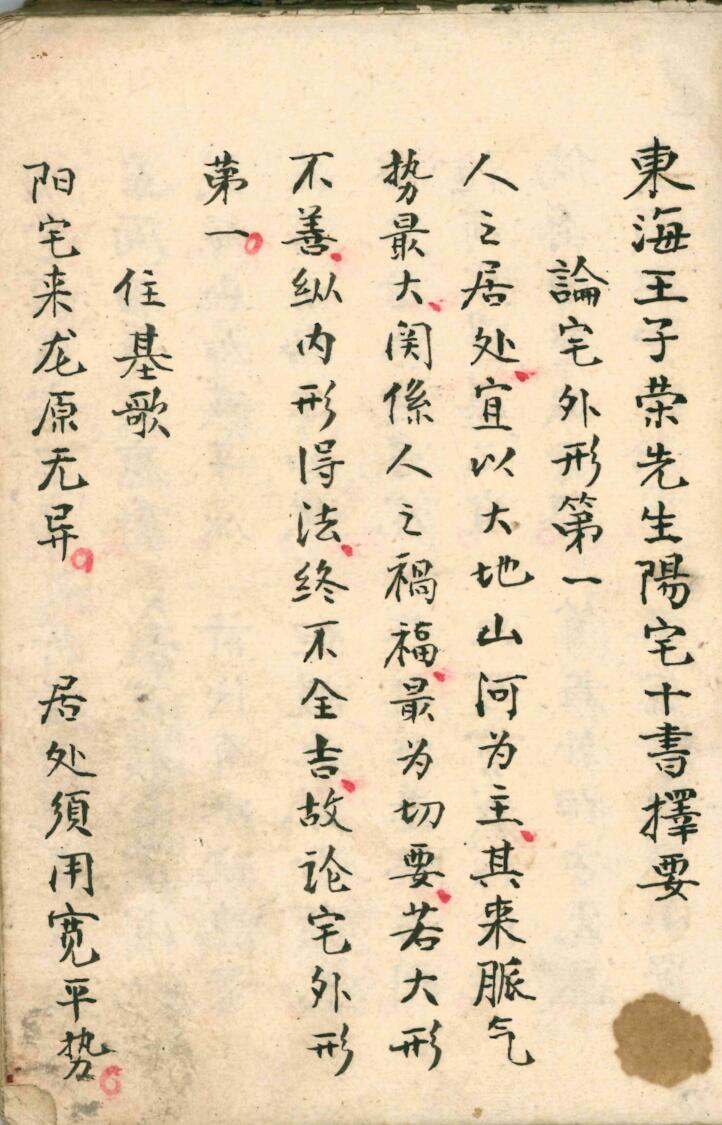 東海王子荣先生陽宅十書擇要
論宅外形第一
人之居处、宜以大地山河为主、其来脈气
势最大、関係人之禍福、最为切要、若大形
不善、纵内形得法、终不全吉、故论宅外形
第一。
住基歌
阳宅来龙原无异。 居处须用宽平势。